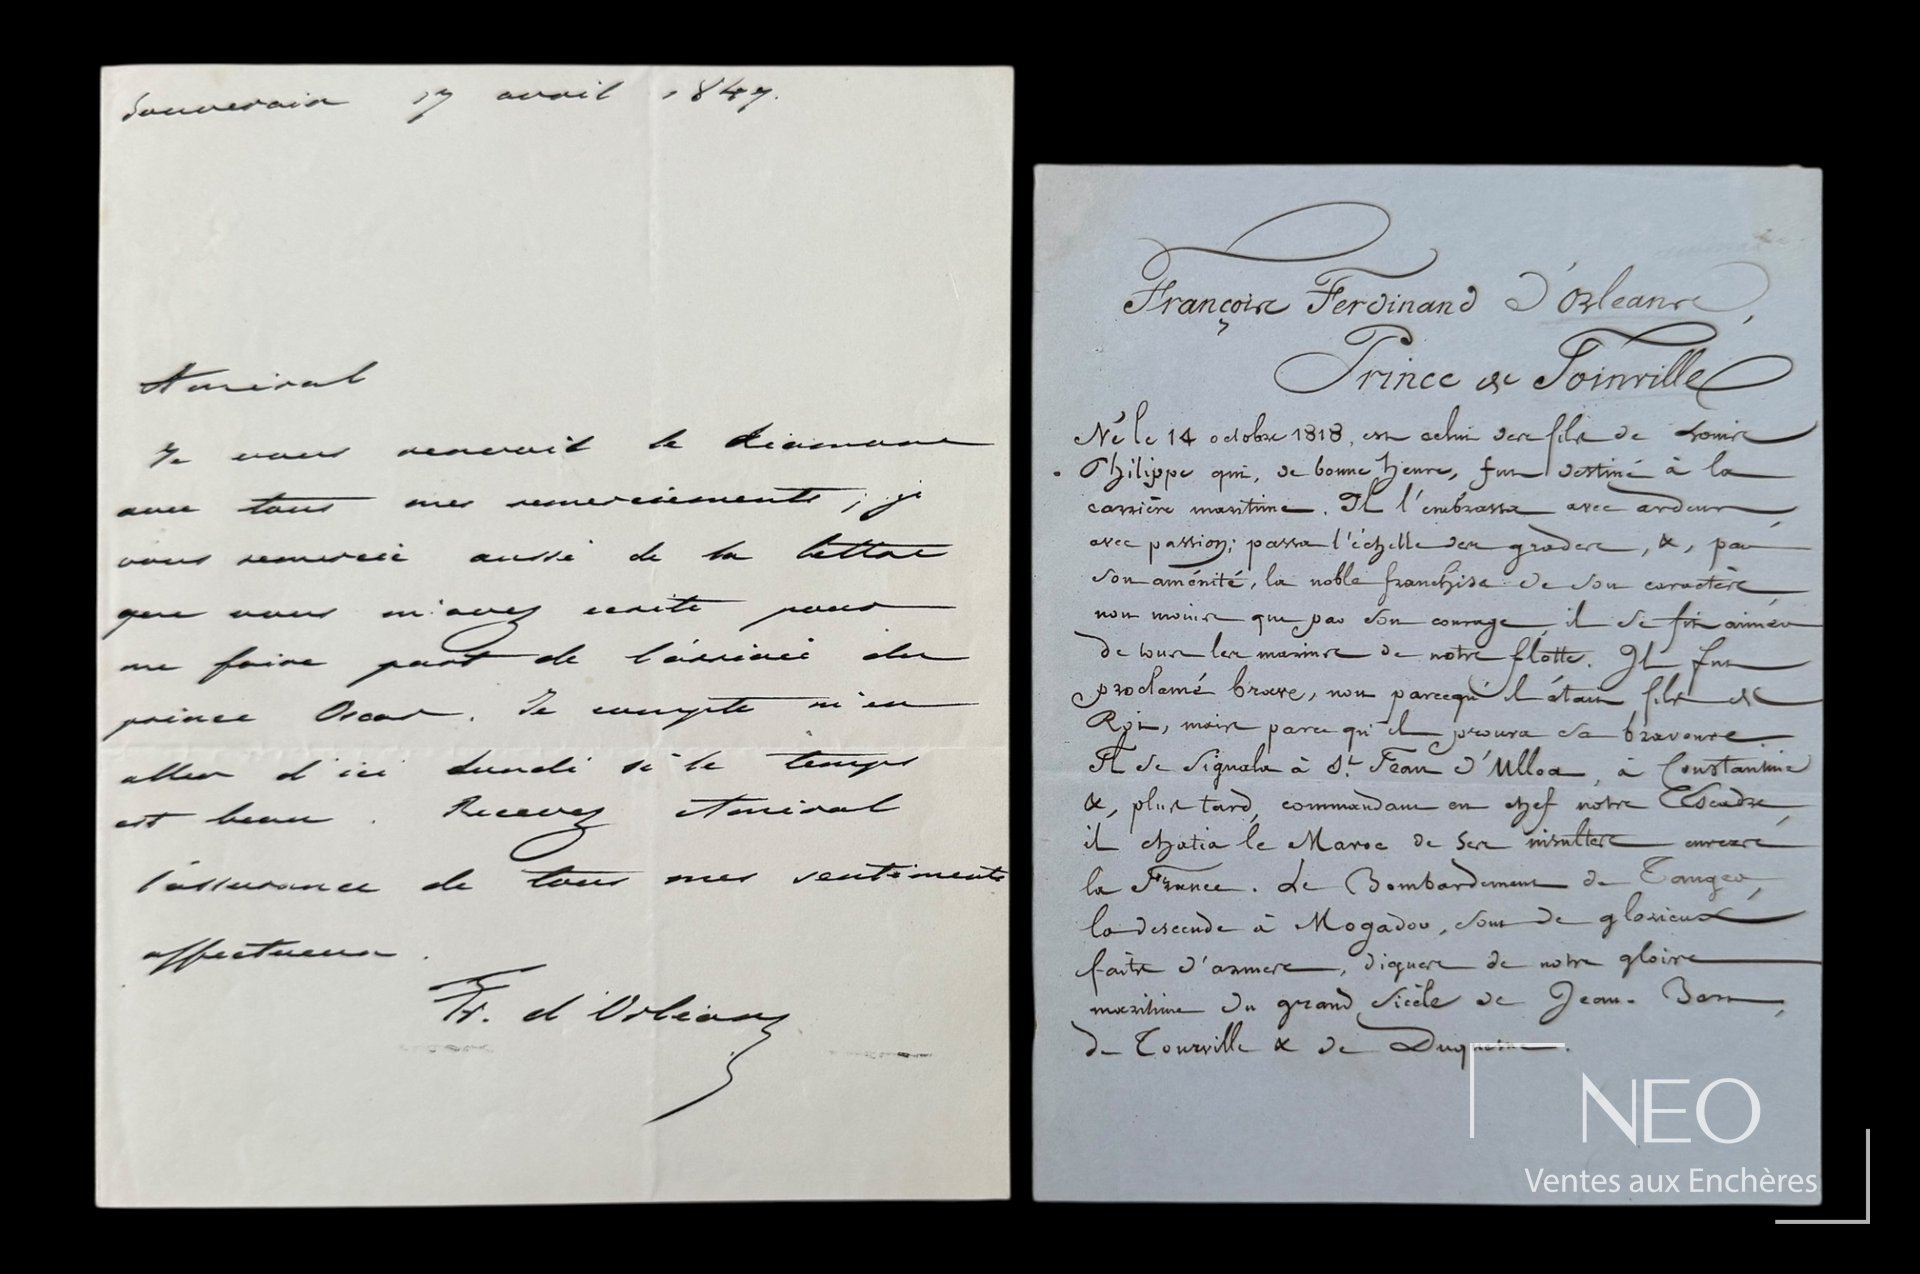 Souverain 17 avril 1847.
Amiral
Je vous renvoie le
avec tous mes remerciements ; je
vous remercie aussi de la lettre
que vous m'avez ecrite pour
me faire part de l'arrivée du
prince Oscar. Je compte m'en
aller d'ici Lundi si le temps
est beau. Recevez Amiral
l'assurance de tous mes sentiments
affectueux.
Fr. d'Orléans
François Ferdinand d'Orleans,
Prince de Joinville
Né le 14 octobre 1818, est celui des fils de Louis
Philippe qui, de bonne heure, fut destiné à la
carrière maritime. Il l'embrassa avec ardeur
avec passion; passa l'échelle des grades, &, par
son aménité, la noble franchise de son caractère,
non moins que par son courage, il se fit aimer
de tous les marins de notre flotte. Il fut
proclamé brave, non parcequ'il était fils de
Roi, mais parce qu'il prouva sa bravoure.
Il se signala à St Jean d'Ulloa, à Constantine
&, plus tard, commandant en chef notre Escadre,
il chatia le Maroc de ses insultes envers
la France. Le Bombardement de Tanger,
la descende à Mogador, sont de glorieux
faits d'armes, dignes de notre gloire
maritime du grand siècle de Jean-Bart,
de Tourville & de Duquesne.
NEO
Ventes aux Enchères